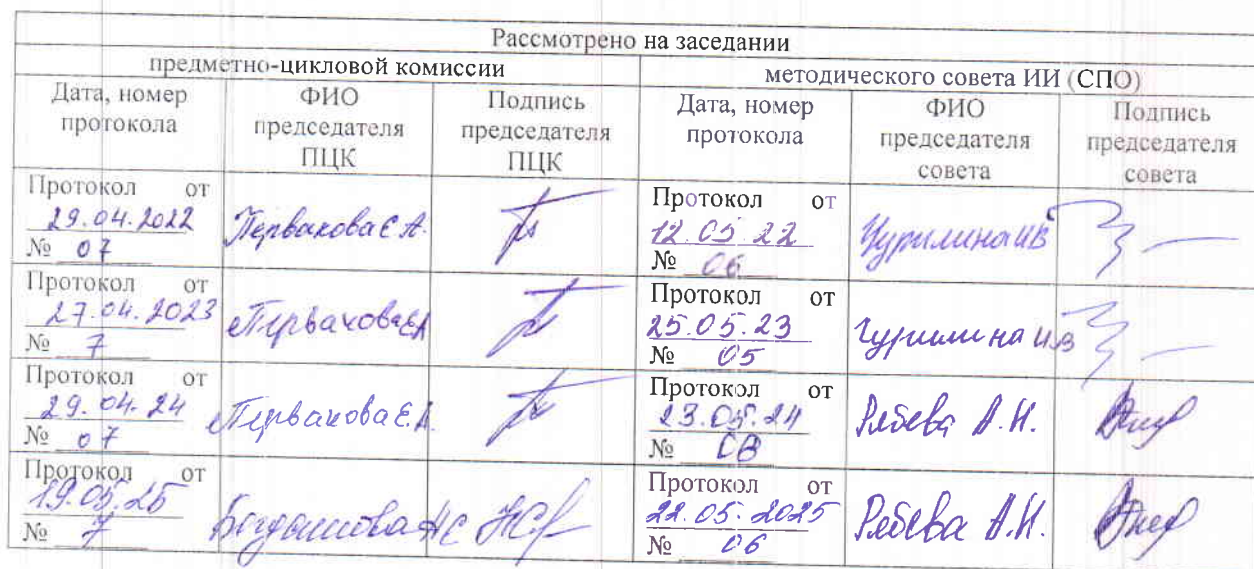 Рассмотрено на заседании
предметно-цикловой комиссии
методического совета ИИ (СПО)
Дата, номер протокола
ФИО председателя ПЦК
Подпись председателя ПЦК
Дата, номер протокола
ФИО председателя совета
Подпись председателя совета
Протокол от
29.04.2022
№ 07
Первакова Е.А.
Протокол от
12.05.22
№ 06
Чурилина ИВ
Протокол от
27.04.2023
№ 7
Первакова ЕА
Протокол от
25.05.23
№ 05
Чурилина ИВ
Протокол от
29.04.24
№ 07
Первакова Е.А.
Протокол от
23.05.24
№
А.Н.
Протокол от
19.05.25
№ 7
Богдашова НС
Протокол от
22.05.2025
№ 06
А.Н.